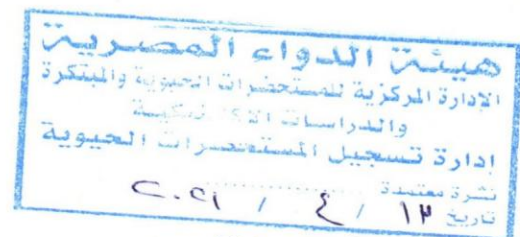 هيئة الدواء المصرية
الإدارة المركزية للمستحضرات الحيوية والمبتكرة
والدراسات الاكلينيكية
إدارة تسجيل المستحضرات الحيوية
نشرة معتمدة ..............
تاريخ ١٣ / ٤ / ٢٠٢١